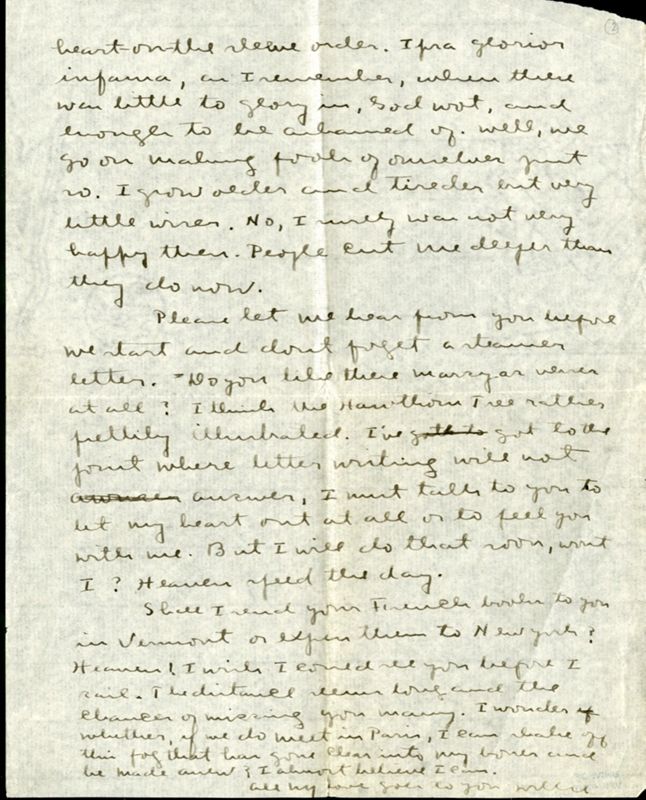 2
heart-on-the sleeve order. Ipra glorior
infama, as I remember, when there
was little to glory in, God wot, and
enough to be ashamed of. Well, we
go on making fools of ourselves just
so. I grow older and tireder but very
little wiser. No, I surely was not very
happy then. People cut me deeper than
they do now.
Please let me hear from you before
we start and dont forget a steamer
letter. Do you like these verses
at all? I think the Hawthorn Tree rather
prettily illustrated. I've got to the
point where letter writing will not
answer, I must talk to you to
let my heart out at all or to feel you
with me. But I will do that soon, wont
I? Heaven speed the day.
Shall I send your French books to you
in Vermont or express them to New York?
Heavens! I wish I could see you before I
sail. The distance seems long and the
chances of missing you many. I wonder if
whether, if we do meet in Paris, I can shake off
this fog that has gone clear into my bones and
be made anew? I almost believe I can.
All my love goes to you Willa